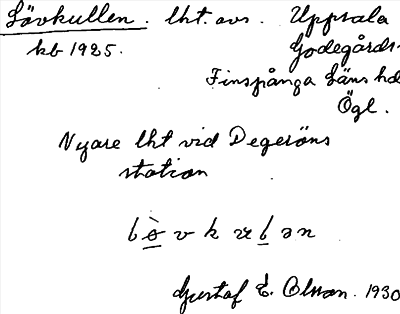 Lövkullen. lht. avs. Uppsala
kb 1925. Godegårds-
Finspånga läns hd
Ögl.
Nyare lht vid Degeröns
station
Gustaf E. Olsson. 1930